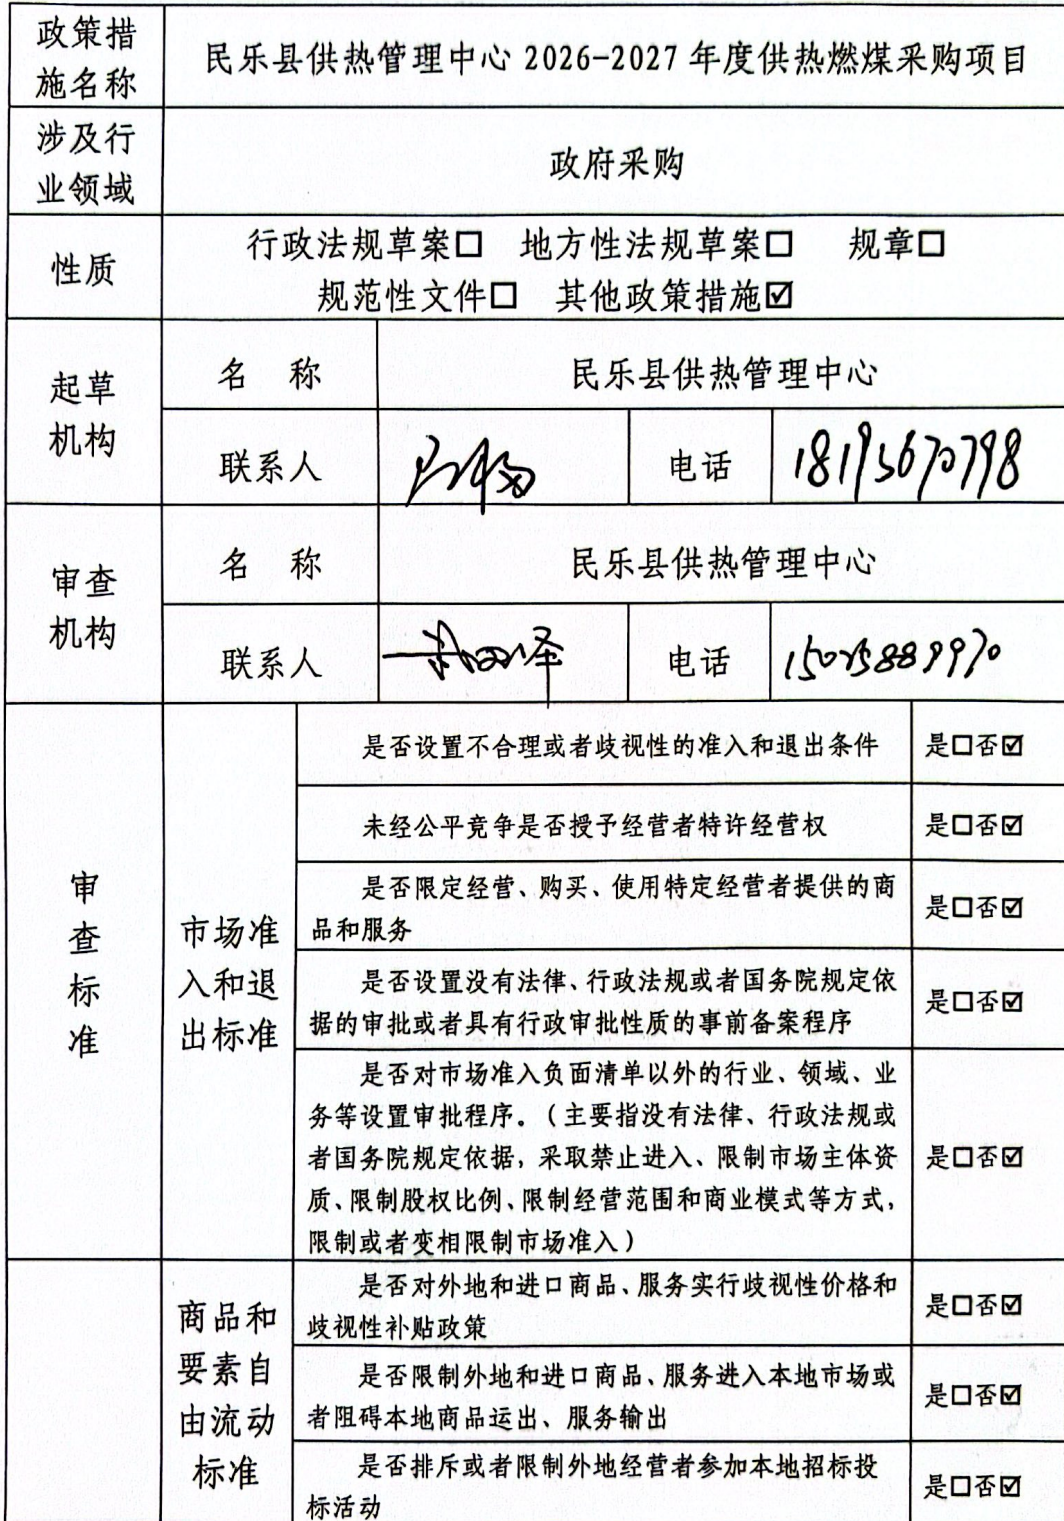 政策措
施名称
民乐县供热管理中心 2026-2027 年度供热燃煤采购项目
涉及行
业领域
政府采购
性质
行政法规草案□ 地方性法规草案□ 规章□
规范性文件□ 其他政策措施☑
起草
机构
名 称
民乐县供热管理中心
联系人
电话
审查
机构
名 称
民乐县供热管理中心
联系人
电话
审
查
标
准
市场准
入和退
出标准
是否设置不合理或者歧视性的准入和退出条件
是□否☑
未经公平竞争是否授予经营者特许经营权
是□否☑
是否限定经营、购买、使用特定经营者提供的商
品和服务
是□否☑
是否设置没有法律、行政法规或者国务院规定依
据的审批或者具有行政审批性质的事前备案程序
是□否☑
是否对市场准入负面清单以外的行业、领域、业
务等设置审批程序。（主要指没有法律、行政法规或
者国务院规定依据，采取禁止进入、限制市场主体资
质、限制股权比例、限制经营范围和商业模式等方式，
限制或者变相限制市场准入）
是□否☑
商品和
要素自
由流动
标准
是否对外地和进口商品、服务实行歧视性价格和
歧视性补贴政策
是□否☑
是否限制外地和进口商品、服务进入本地市场或
者阻碍本地商品运出、服务输出
是□否☑
是否排斥或者限制外地经营者参加本地招标投
标活动
是□否☑